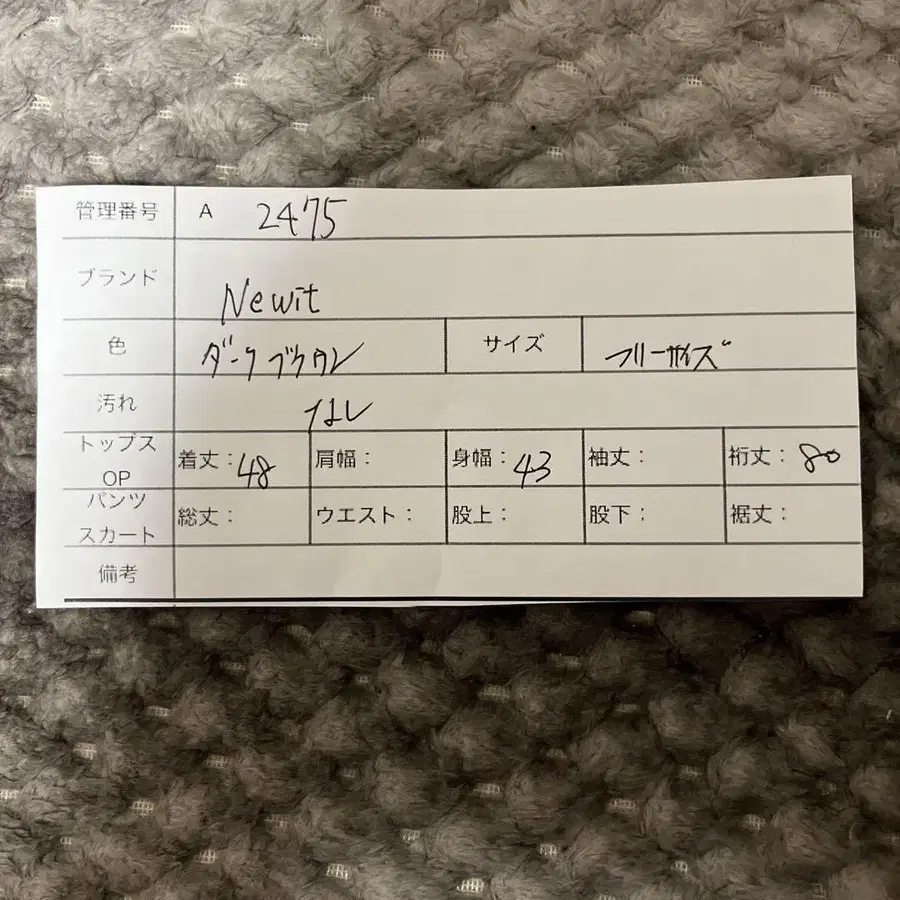 管理番号 A 2475
ブランド Newit
色 ダークブラウン サイズ フリーサイズ
汚れ なし
トップス OP 着丈：48 肩幅： 身幅：43 袖丈： 裄丈：80
パンツ スカート 総丈： ウエスト： 股上： 股下： 裾丈：
備考